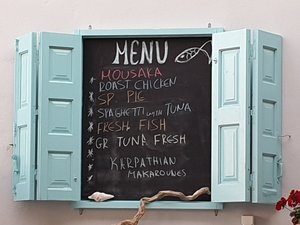 MENU
* MOUSAKA
* ROAST CHICKEN
* SP. PIE
* SPAGHETTI WITH TUNA
* FRESH FISH
* GR TUNA FRESH
* KARPATHIAN
MAKAROUNES